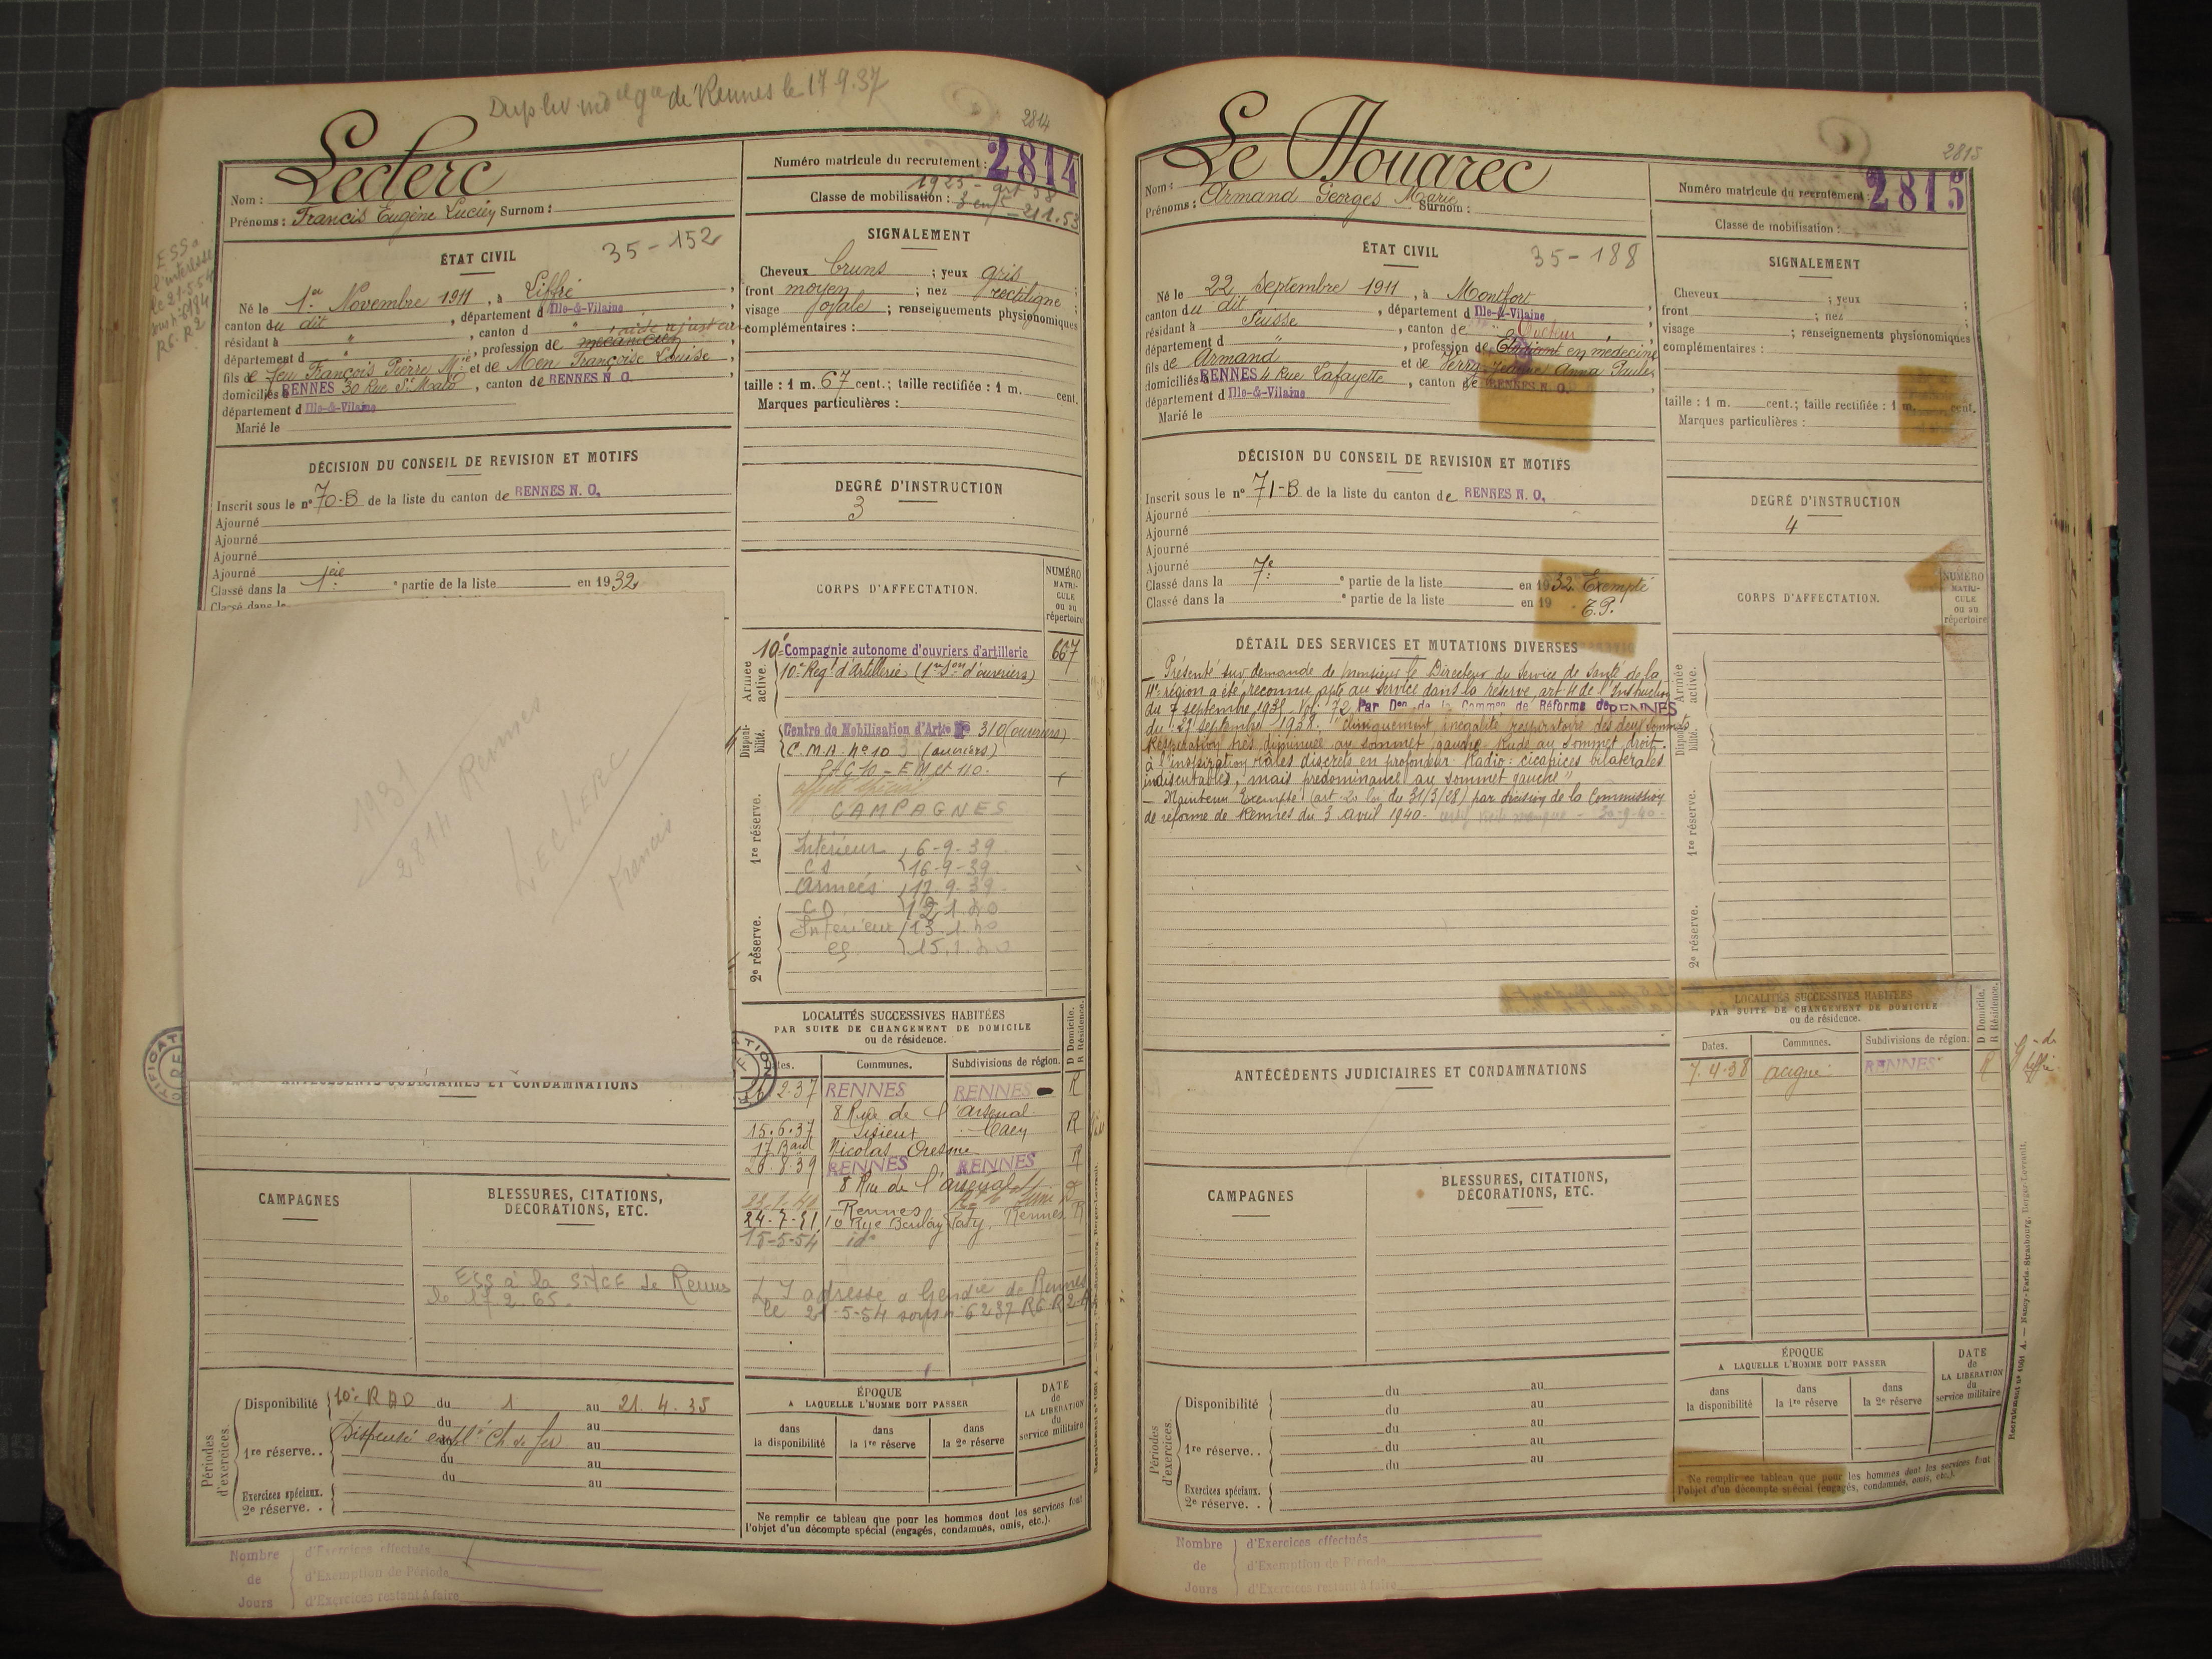 de Rennes le 17.9.37
2814
Leclerc
Nom :
Prénoms : Francis Eugène Lucien Surnom :
Numéro matricule du recrutement : 2814
Classe de mobilisation :
35-152
ÉTAT CIVIL
Né le 1er Novembre 1911, à Liffré,
canton du dit, département d Ille-&-Vilaine
résidant à ", canton d "
département d ", profession de mécanicien
fils de feu François Pierre Mie et de Men Françoise Louise,
domiciliés à RENNES 30 Rue St Malo, canton de RENNES N. O.
département d Ille-&-Vilaine
Marié le
SIGNALEMENT
Cheveux bruns ; yeux gris
front moyen ; nez rectiligne ;
visage ovale ; renseignements physionomiques
complémentaires :
taille : 1 m. 67 cent.; taille rectifiée : 1 m. cent.
Marques particulières :
DÉCISION DU CONSEIL DE REVISION ET MOTIFS
Inscrit sous le n° 70-B de la liste du canton de RENNES N. O.
Ajourné
Ajourné
Ajourné
Ajourné
Classé dans la 1ère partie de la liste en 1932
1931
2814 Rennes
LECLERC
Francis
DEGRÉ D'INSTRUCTION
3
CORPS D'AFFECTATION.
NUMÉRO MATRICULE ou au répertoire
Armée active.
10e Compagnie autonome d'ouvriers d'artillerie 667
10e Regt d'Artillerie (1re Son d'ouvriers)
Disponibilité.
Centre de Mobilisation d'Artie N° 310 (ouvriers)
C.M.A. No 10 (ouvriers)
1re réserve.
affecté spécial
CAMPAGNES
Intérieur 6-9-39
CS 16-9-39
Armées 17.9.39
12.1.40
Intérieur 13.1.40
15.1.40
2e réserve.
LOCALITÉS SUCCESSIVES HABITÉES
PAR SUITE DE CHANGEMENT DE DOMICILE
ou de résidence.
Dates. Communes. Subdivisions de région. D Domicile. R Résidence.
2.37 RENNES RENNES R
8 Rue de l'arsenal
15.6.37 Lisieux Caen R
17 Band Nicolas Oresme
20.8.39 RENNES RENNES R
8 Rue de l'arsenal
Rennes
24-7-51 10 Rue Barlay Paty, Rennes R
18-5-54 id°
adresse a Gendie de Rennes
le 21-5-54 sous n° 6237 R6.R2
ANTÉCÉDENTS JUDICIAIRES ET CONDAMNATIONS
CAMPAGNES
BLESSURES, CITATIONS, DÉCORATIONS, ETC.
ESS à la SNCF de Rennes
le 17.2.65.
Périodes d'exercices.
Disponibilité 10e RAD du 1 au 21.4.35
du au
1re réserve.. Dispensé empl. Ch de fer au
du au
du au
Exercices spéciaux.
2e réserve. .
ÉPOQUE
A LAQUELLE L'HOMME DOIT PASSER
dans la disponibilité
dans la 1re réserve
dans la 2e réserve
DATE de LA LIBÉRATION du service militaire
Ne remplir ce tableau que pour les hommes dont les services font
l'objet d'un décompte spécial (engagés, condamnés, omis, etc.).
Nombre de Jours
d'Exercices effectués
d'Exemption de Période
d'Exercices restant à faire
2815
Le Nouarec
Nom :
Prénoms : Armand Georges Marie Surnom :
Numéro matricule du recrutement : 2815
Classe de mobilisation :
35-188
ÉTAT CIVIL
Né le 22 Septembre 1911, à Montfort
canton du dit, département d Ille-&-Vilaine
résidant à Suisse, canton de "
département d ", profession de Etudiant en médecine
Docteur
fils de Armand et de Verry Jeanne Anna Paule,
domiciliés RENNES 4 Rue Lafayette, canton de RENNES N. O.
département d Ille-&-Vilaine
Marié le
SIGNALEMENT
Cheveux ; yeux ;
front ; nez ;
visage ; renseignements physionomiques
complémentaires :
taille : 1 m. cent.; taille rectifiée : 1 m. cent.
Marques particulières :
DÉCISION DU CONSEIL DE REVISION ET MOTIFS
Inscrit sous le n° 71-B de la liste du canton de RENNES N. O.
Ajourné
Ajourné
Ajourné
Ajourné
Classé dans la 7e partie de la liste en 1932 Exempté
Classé dans la partie de la liste en 19 T.P.
DEGRÉ D'INSTRUCTION
4
CORPS D'AFFECTATION.
NUMÉRO MATRICULE ou au répertoire
Armée active.
Disponibilité.
1re réserve.
2e réserve.
DÉTAIL DES SERVICES ET MUTATIONS DIVERSES
— Présenté sur demande de Monsieur le Directeur du Service de Santé de la
4e région a été reconnu apte au service dans la réserve art 4 de l'Instruction
du 7 septembre 1938. Vol. 72. Par Don de la Common de Réforme de RENNES
du 27 septembre 1938. "cliniquement inégalité respiratoire des deux sommets
Respiration très diminuée au sommet gauche. Rude au sommet droit.
à l'inspiration râles discrets en profondeur. Radio : cicatrices bilatérales
indiscutables, mais prédominance au sommet gauche"
— Maintenu Exempté (art. 20 loi du 31/3/28) par décision de la Commission
de réforme de Rennes du 3 avril 1940.
ANTÉCÉDENTS JUDICIAIRES ET CONDAMNATIONS
CAMPAGNES
BLESSURES, CITATIONS, DÉCORATIONS, ETC.
LOCALITÉS SUCCESSIVES HABITÉES
PAR SUITE DE CHANGEMENT DE DOMICILE
ou de résidence.
Dates. Communes. Subdivisions de région. D Domicile. R Résidence.
7.4.38 Acigné RENNES R
Périodes d'exercices.
Disponibilité du au
du au
du au
1re réserve.. du au
du au
Exercices spéciaux.
2e réserve. .
ÉPOQUE
A LAQUELLE L'HOMME DOIT PASSER
dans la disponibilité
dans la 1re réserve
dans la 2e réserve
DATE de LA LIBÉRATION du service militaire
Ne remplir ce tableau que pour les hommes dont les services font
l'objet d'un décompte spécial (engagés, condamnés, omis, etc.).
Nombre de Jours
d'Exercices effectués
d'Exemption de Période
d'Exercices restant à faire